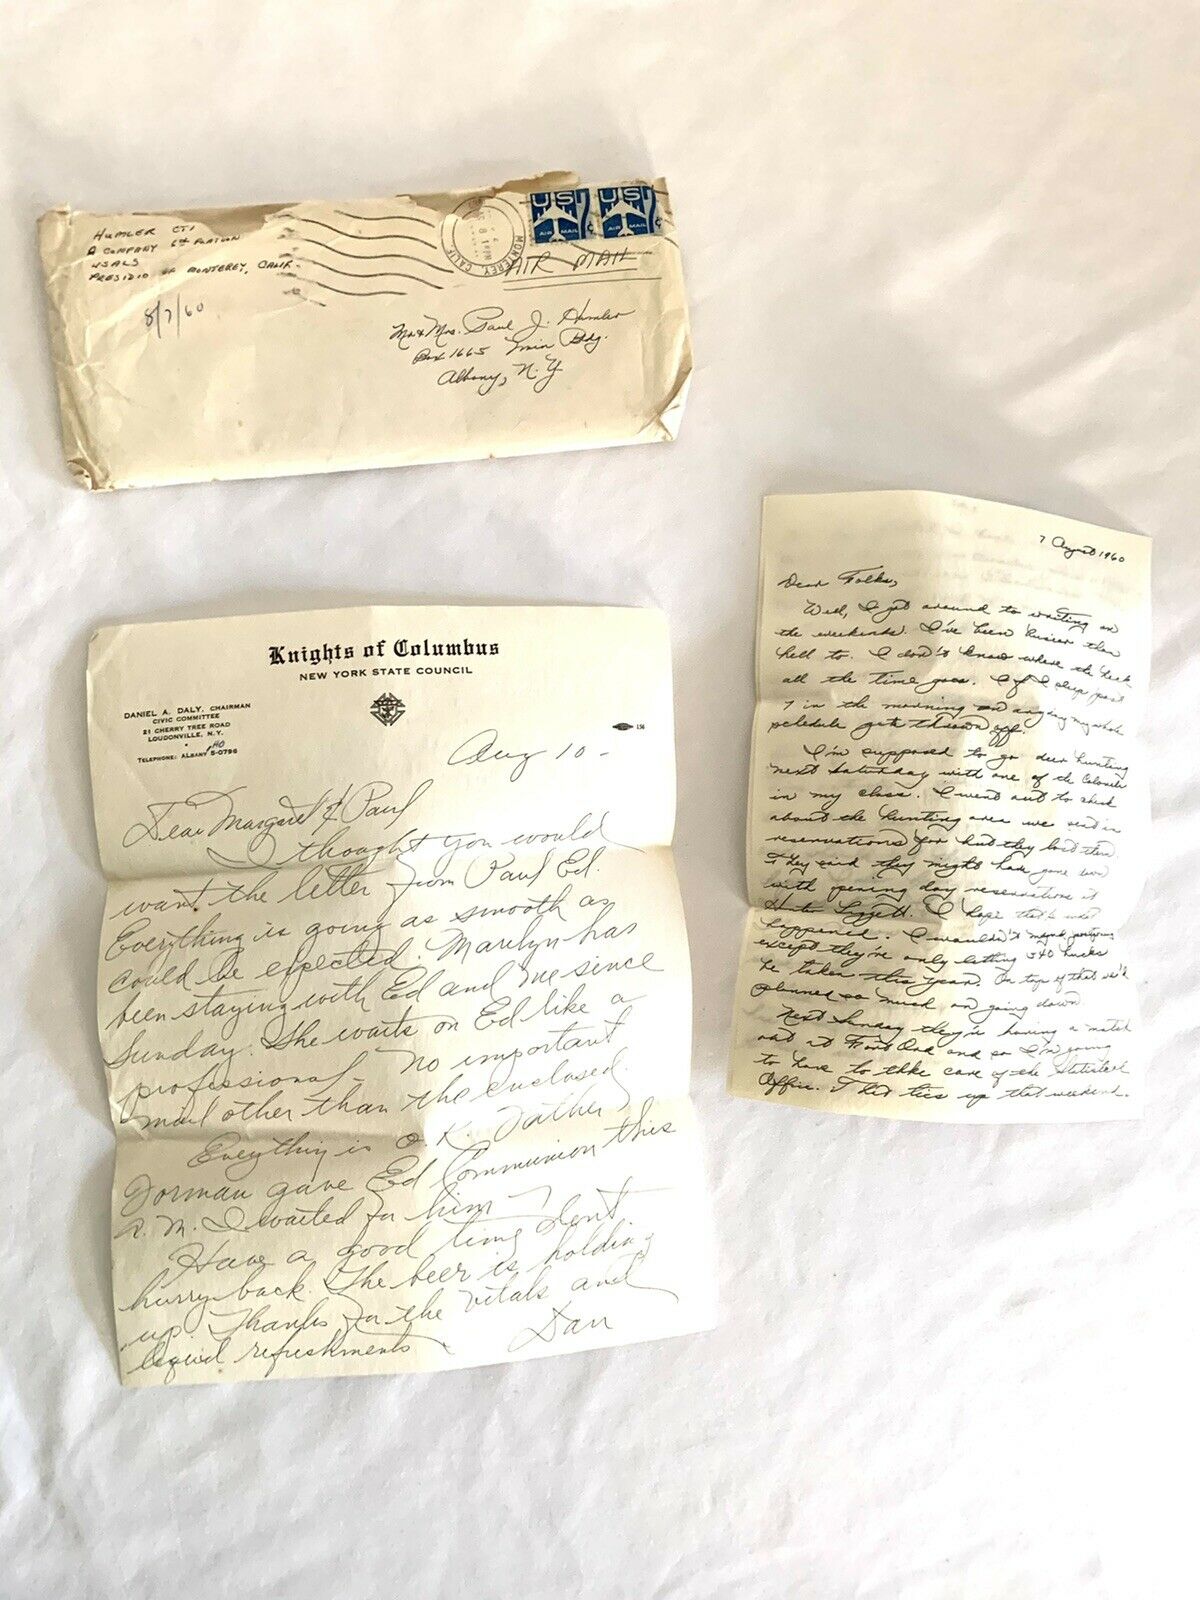 HUMLER CTI
A COMPANY 6th PLATOON
USALS
PRESIDIO OF MONTEREY, CALIF.
8/7/60
MONTEREY, CALIF.
US 7¢
AIR MAIL
US 7¢
AIR MAIL
AIR MAIL
Mr & Mrs. Paul J. Humler
Box 1665 Bldg.
Albany, N.Y.
Knights of Columbus
NEW YORK STATE COUNCIL
DANIEL A. DALY, CHAIRMAN
CIVIC COMMITTEE
21 CHERRY TREE ROAD
LOUDONVILLE, N.Y.
TELEPHONE: ALBANY HO 5-0796
156
Aug 10 -
Dear Margaret & Paul
I thought you would
want the letter from Paul Ed.
Everything is going as smooth as
could be expected. Marilyn has
been staying with Ed and me since
Sunday. She waits on Ed like a
professional - No important
mail other than the enclosed.
Everything is O.K. Father
Dorman gave Ed Communion this
A.M. I waited for him -
Have a good time, don't
hurry back. The beer is holding
up. Thanks for the vitals and
liquid refreshments
Dan
7 August 1960
Dear Folks,
Well, I get around to writing on
the weekends. I've been busier than
hell to. I don't know where the heck
all the time goes. If I sleep past
7 in the morning on any day my whole
schedule gets thrown off.
I'm supposed to go deer hunting
next Saturday with one of the Colonels
in my class. I went out to check
about the hunting area we send in
reservations for but they lost them.
They said they might have gone down
with opening day reservations at
Hunter Liggett. I hope that's what
happened. I wouldn't mind
except they're only letting 340 bucks
be taken this year. On top of that we'd
planned so much on going down
Next Sunday they're having a match
out at Fort Ord and so I'm going
to have to take care of the Statistical
Office. That ties up that weekend.